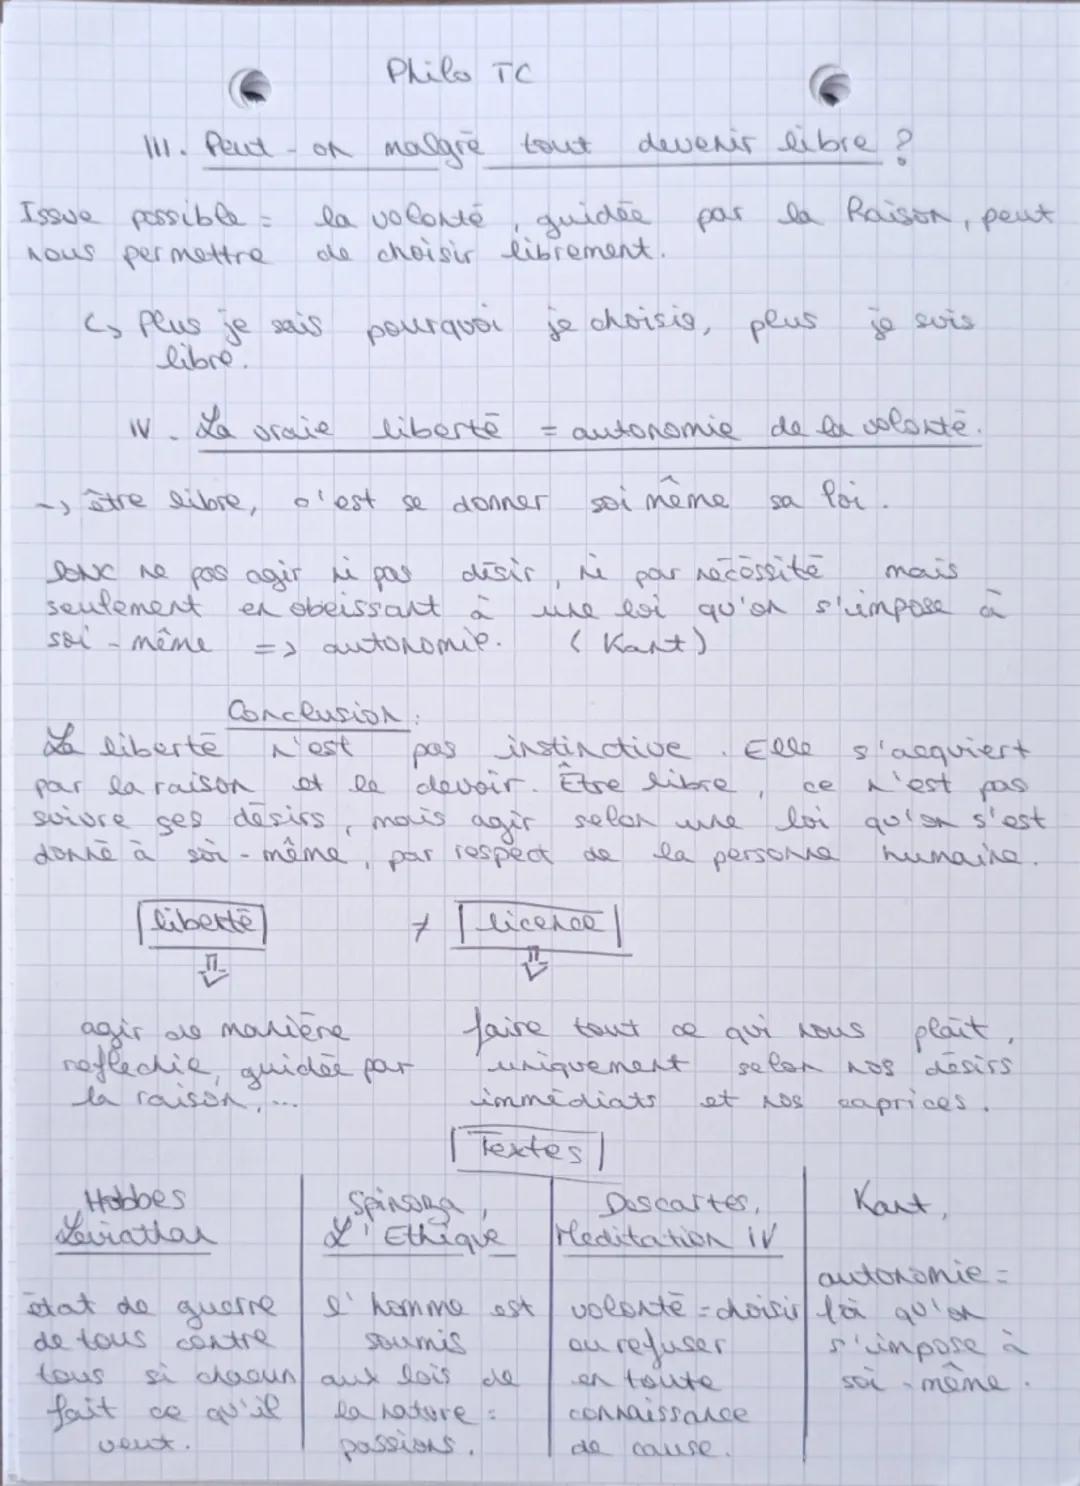 Philo TC
III. Peut-on malgré tout devenir libre ?
Issue possible = la volonté, guidée par la Raison, peut
nous permettre de choisir librement.
↳ Plus je sais pourquoi je choisis, plus je suis
libre.
IV. La vraie liberté = autonomie de la volonté.
→ être libre, c'est se donner soi même sa loi.
Donc ne pas agir ni pas désir, ni par nécéssité mais
seulement en obeissant à une loi qu'on s'impose à
soi-même => autonomie. (Kant)
Conclusion :
La liberté n'est pas instinctive. Elle s'acquiert
par la raison et le devoir. Être libre, ce n'est pas
suivre ses désirs, mais agir selon une loi qu'on s'est
donné à soi-même, par respect de la personne humaine.
liberté ≠ licence
⇓ ⇓
agir de manière faire tout ce qui nous plaît,
reflechie, guidée par uniquement selon nos désirs
la raison, ... immédiats et nos caprices.
Textes
Hobbes
Leviathan
état de guerre
de tous contre
tous si chacun
fait ce qu'il
veut.
Spinoza,
L'Ethique
l'homme est
soumis
aux lois de
la nature =
passions.
Descartes,
Meditation IV
volonté = choisir
ou refuser
en toute
connaissance
de cause.
Kant,
autonomie =
loi qu'on
s'impose à
soi-même.